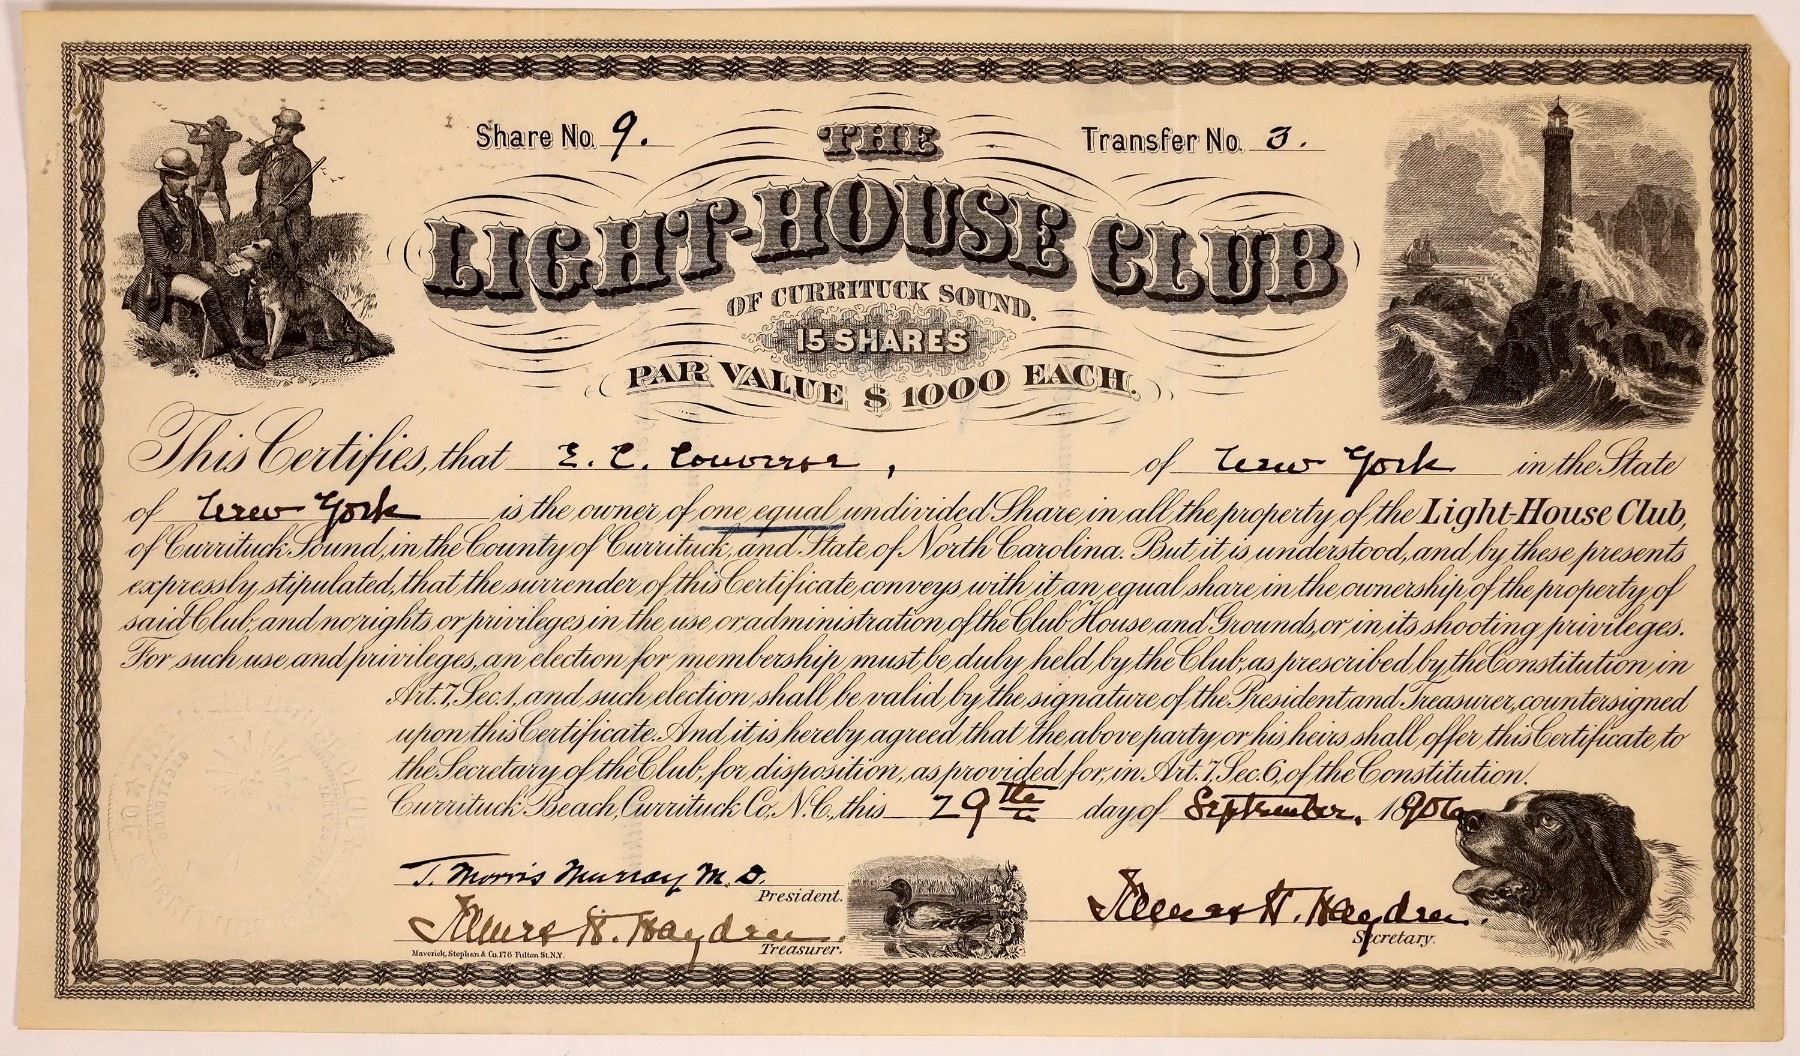 Share No. 9.
THE
Transfer No. 3.
LIGHT-HOUSE CLUB
OF CURRITUCK SOUND.
15 SHARES
PAR VALUE $1000 EACH.
This Certifies, that E. C. Converse, of New York in the State
of New York is the owner of one equal undivided Share in all the property of the Light-House Club,
of Currituck Sound, in the County of Currituck, and State of North Carolina. But it is understood, and by these presents
expressly stipulated, that the surrender of this Certificate conveys with it an equal share in the ownership of the property of
said Club; and no rights or privileges in the use or administration of the Club House and Grounds, or in its shooting privileges.
For such use and privileges, an election for membership must be duly held by the Club, as prescribed by the Constitution in
Art. 7, Sec. 1, and such election shall be valid by the signature of the President and Treasurer, countersigned
upon this Certificate. And it is hereby agreed that the above party or his heirs, shall offer this Certificate to
the Secretary of the Club, for disposition, as provided for, in Art. 7, Sec. 6, of the Constitution.
Currituck Beach, Currituck Co. N.C., this 29th day of September, 1906
J. Morris Murray M.D.
President.
James H. Hayden.
Treasurer.
James H. Hayden.
Secretary.
Maverick, Stephan & Co. 176 Fulton St. N.Y.